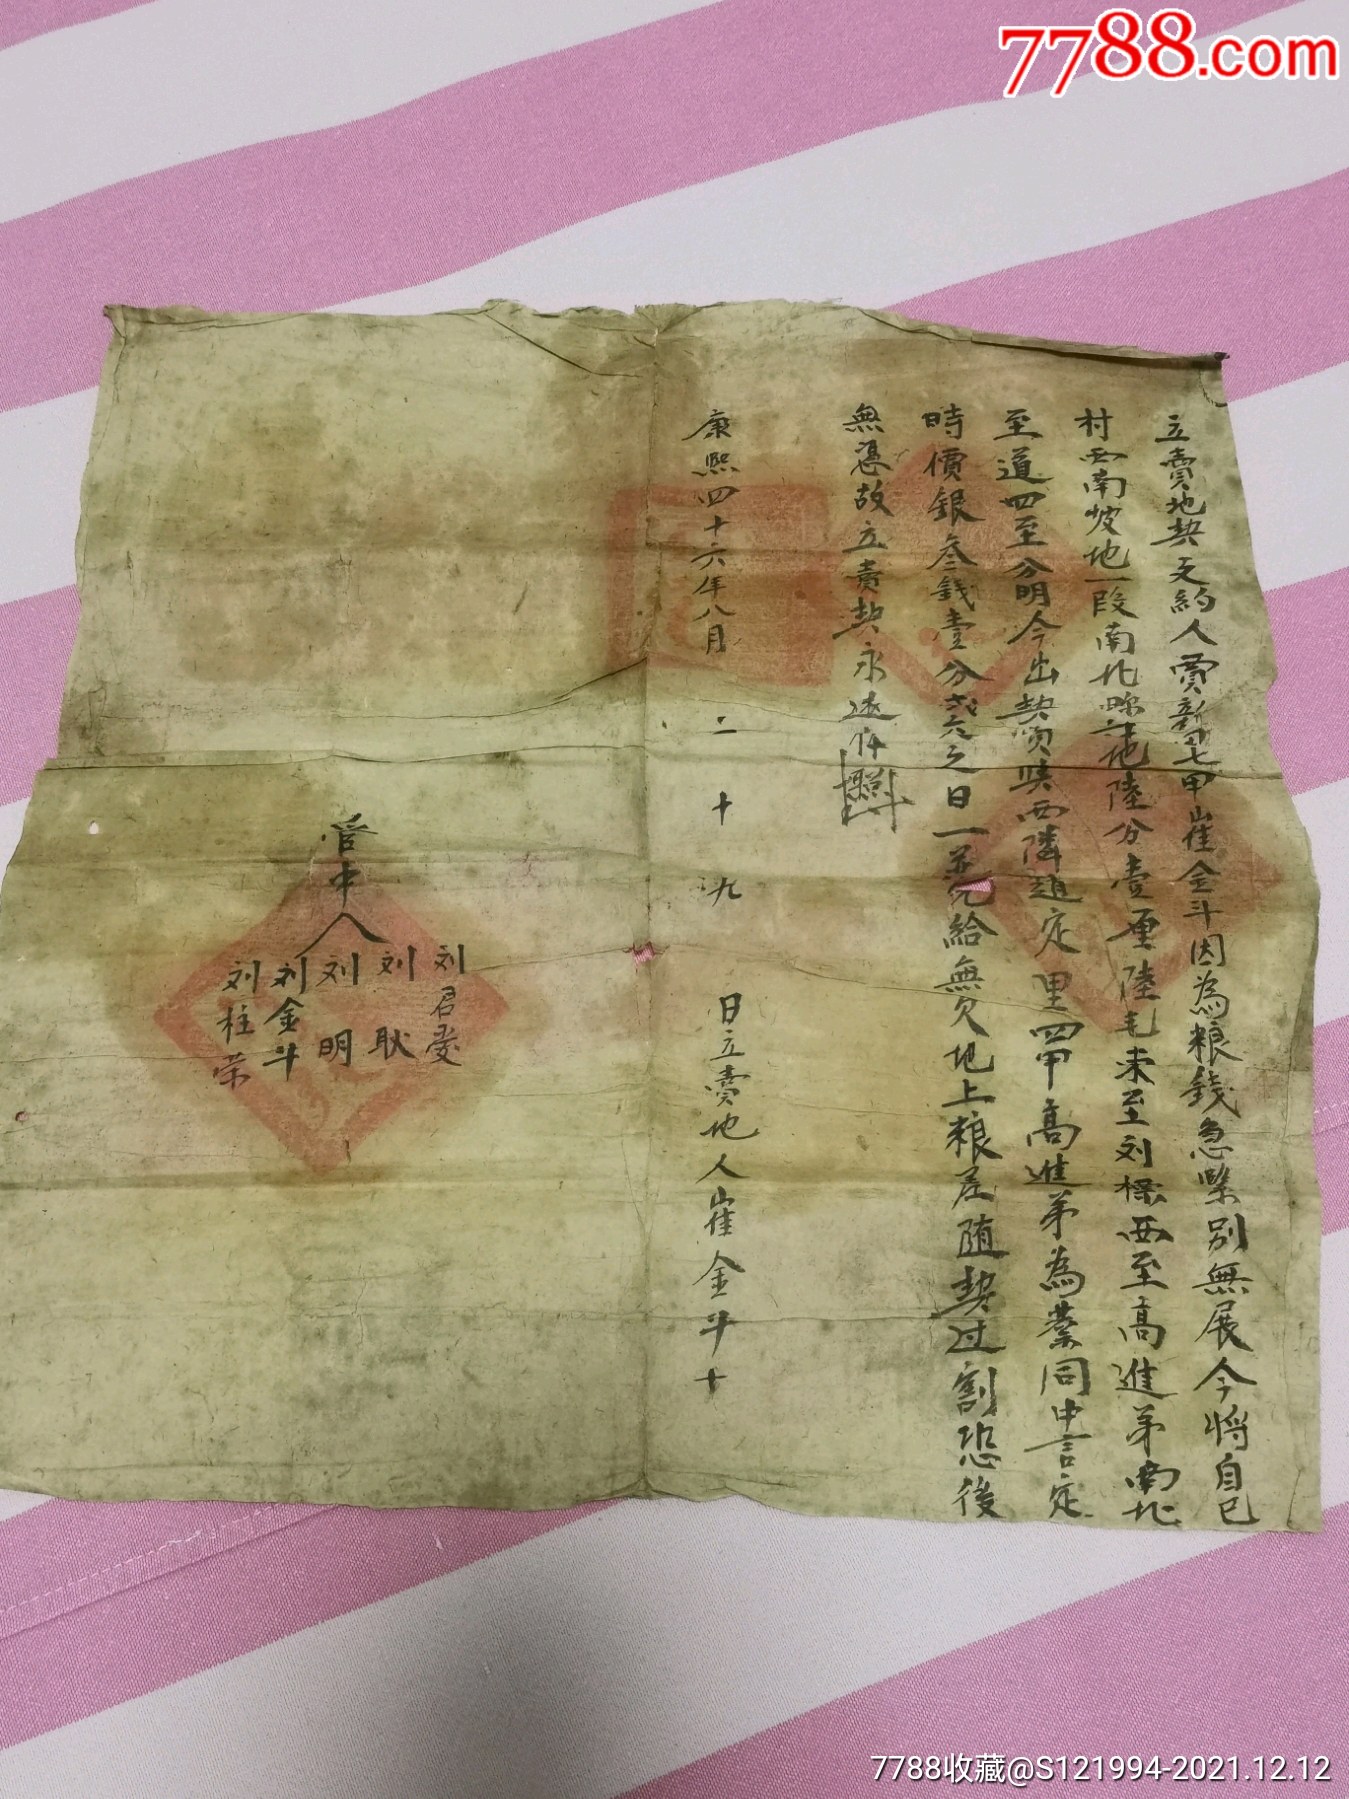 7788.com
立賣地契文約人賣新七甲崔金斗因為粮錢急緊別無展今將自己
村西南坡地一段南北畛地陸分壹厘陸毛東至刘標西至高進弟南北
至道四至分明今出契賣與西隣趙定里四甲高進弟為業同中言定
時價銀叁錢壹分六之日一並完給無欠地上粮差随契过割恐後
無憑故立賣契永遠存照
康熙四十六年八月二十九日立賣地人崔金斗十
管中人
刘君愛
刘耿
刘明
刘金斗
刘柱荣
7788收藏@S121994-2021.12.12